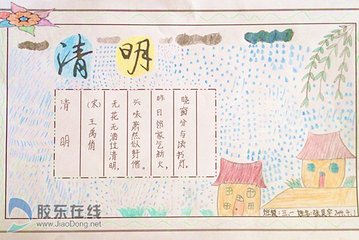 清明
清明
(宋)王禹偁
无花无酒过清明,
兴味萧然似野僧。
昨日邻家乞新火,
晓窗分与读书灯。
班级:三.一 姓名:张
胶东在线
www.JiaoDong.net